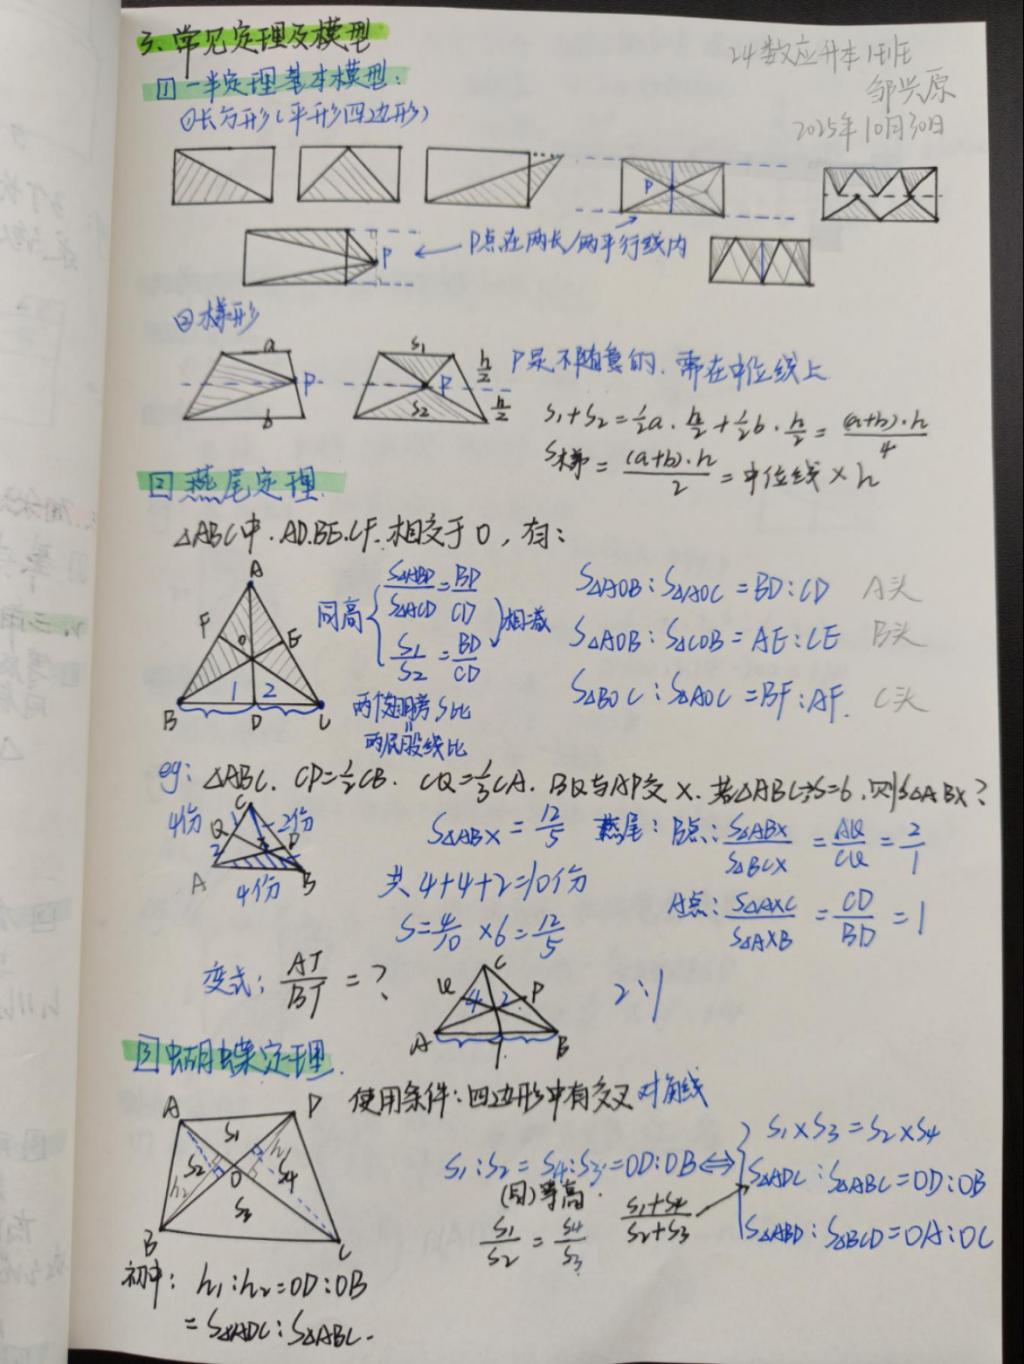 三、常见定理及模型
24数应升本1班
邹兴原
2025年10月30日
1 一半定理基本模型:
①长方形(平形四边形)
P
P
P点在两长/两平行线内
②梯形
a
P
b
S1
P
S2
h/2
h/2
P是不随意的.需在中位线上
S1+S2=1/2a·h/2+1/2b·h/2=(a+b)·h/4
S梯=(a+b)·h/2=中位线×h
2 燕尾定理
△ABC中.AD.BE.CF.相交于O,有:
A
F
O
E
1
2
B
D
C
同高
S△ABD/S△ACD=BD/CD
S1/S2=BD/CD
相减
S△AOB:S△AOC=BD:CD A头
S△AOB:S△COB=AE:CE B头
S△BOC:S△AOC=BF:AF. C头
两个翅膀S比
=
两屁股线比
eg: △ABC. CP=1/2CB. CQ=1/3CA. BQ与AP交X.若△ABC的S=6.则S△ABX?
C
4份
Q
2份
2
X
P
A
B
4份
S△ABX=12/5
共4+4+2=10份
S=4/10×6=12/5
燕尾:B点:S△ABX/S△BCX=AQ/CQ=2/1
A点:S△AXC/S△AXB=CD/BD=1
变式:AT/BT=?
C
Q
4
2
P
A
B
2:1
3 蝴蝶定理.
使用条件:四边形中有交叉对角线
A
D
S1
S2
O
S4
S3
h1
h2
B
C
S1:S2=S4:S3=OD:OB⇔
(同)等高.
S1/S2=S4/S3
S1+S4/S2+S3
S1×S3=S2×S4
S△ADC:S△ABC=OD:OB
S△ABD:S△BCD=OA:OC
初中: h1:h2=OD:OB
=S△ADC:S△ABC.